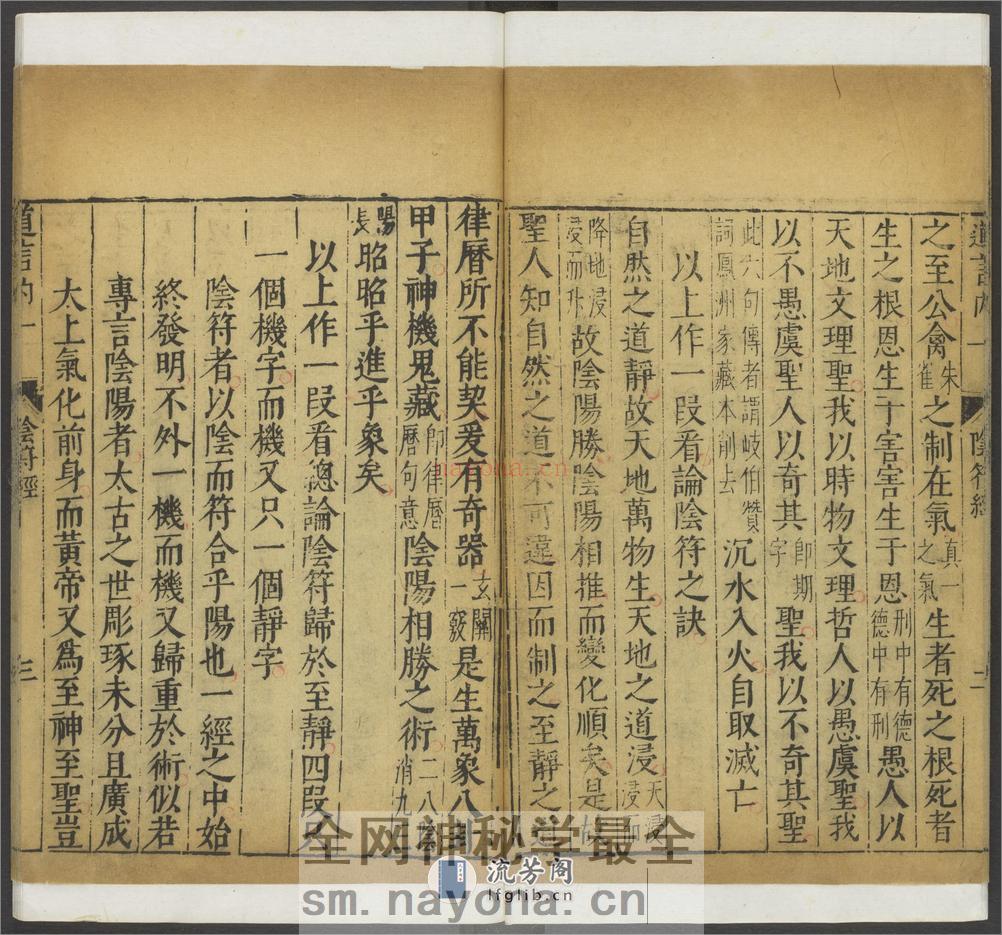 之至公禽朱雀之制在氣真一之氣生者死之根死者
生之根恩生于害害生于恩刑中有德德中有刑愚人以
天地文理聖我以時物文理哲人以愚虞聖我
以不愚虞聖人以奇其即期字聖我以不奇其聖
此六句傳者謂岐伯贊詞鳳洲家藏本削去沉水入火自取滅亡
以上作一段看論陰符之訣
自然之道靜故天地萬物生天地之道浸天浸而
降地浸浸而升故陰陽勝陰陽相推而變化順矣是故
聖人知自然之道不可違因而制之至靜之道
律曆所不能契爰有奇器玄關一竅是生萬象八卦
甲子神機鬼藏即律曆曆句意陰陽相勝之術二八陰消九
陽長昭昭乎進乎象矣
以上作一段看總論陰符歸於至靜四段只
一個機字而機又只一個靜字
陰符者以陰而符合乎陽也一經之中始
終發明不外一機而機又歸重於術似若
專言陰陽者太古之世彫琢未分且廣成
太上氣化前身而黃帝又爲至神至聖豈
陰符經
二
陰符經
三
全网神秘学最全
流芳阁
lfglib.cn
sm.nayona.cn
nayona.cn